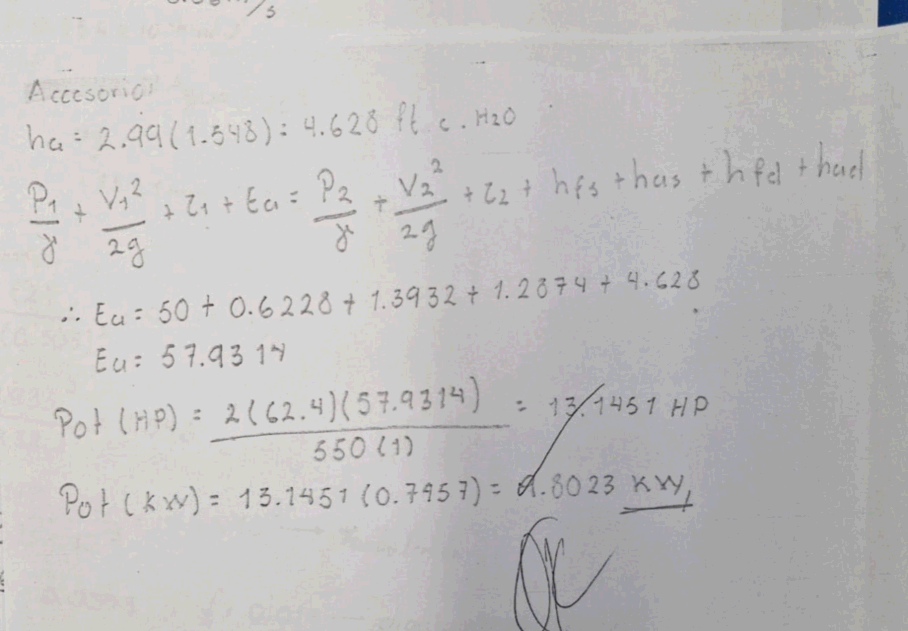 m/s
Accesorio:
ha = 2.99(1.548) = 4.628 ft c. H2O
P1/γ + V1²/2g + z1 + Ea = P2/γ + V2²/2g + z2 + hfs + has + hfd + had
∴ Ea = 50 + 0.6228 + 1.3932 + 1.2874 + 4.628
Ea = 57.9314
Pot (HP) = 2(62.4)(57.9314) / 550(1) = 13.1451 HP
Pot (KW) = 13.1451 (0.7457) = 9.8023 KW